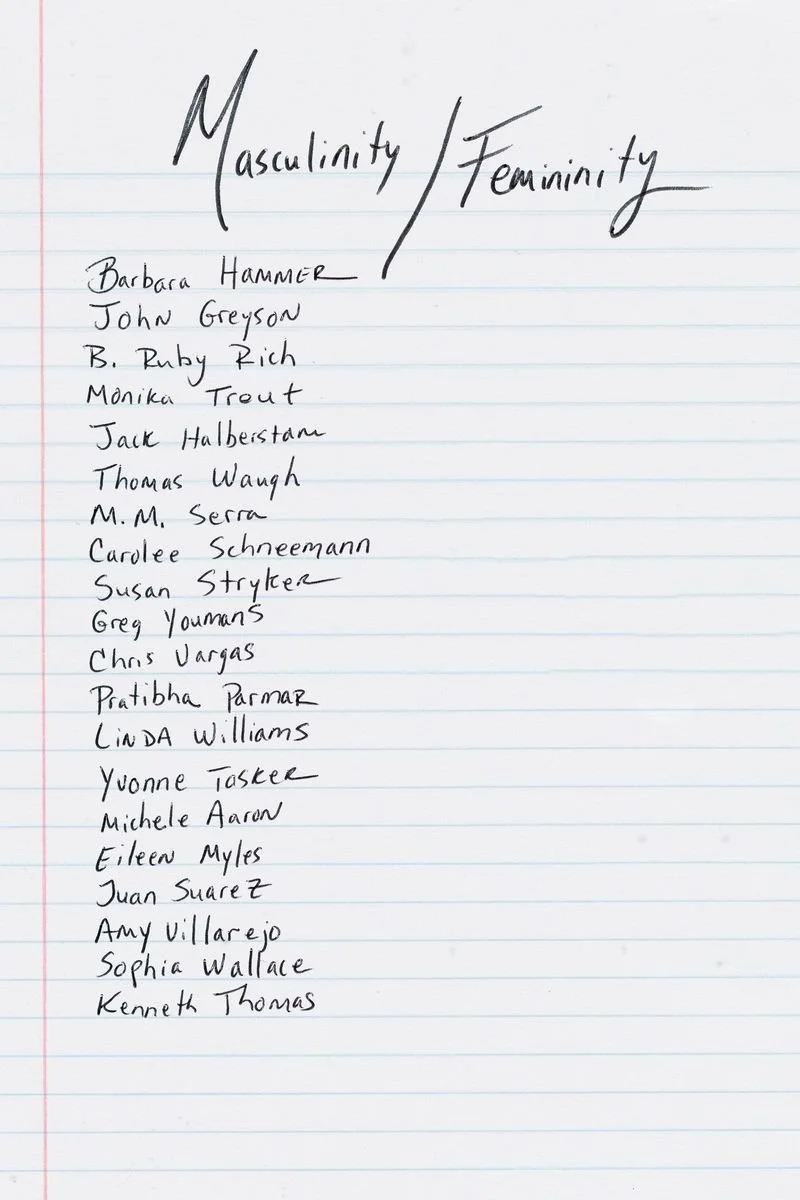 Masculinity/Femininity
Barbara HAMMER
John Greyson
B. Ruby Rich
Monika Trout
Jack Halberstam
Thomas Waugh
M.M. Serra
Carolee Schneemann
Susan Stryker
Greg Youmans
Chris Vargas
Pratibha Parmar
LINDA Williams
Yvonne Tasker
Michele Aaron
Eileen Myles
Juan Suarez
Amy Villarejo
Sophia Wallace
Kenneth Thomas